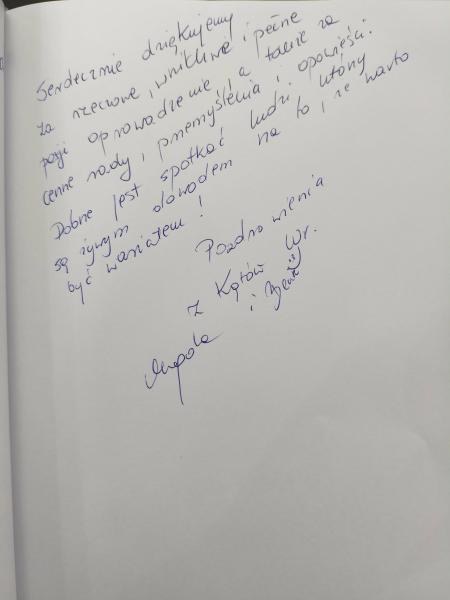 Serdecznie dziękujemy
za rzeczowe, wnikliwe i pełne
pasji oprowadzenie, a także za
cenne rady i przemyślenia i opowieści.
Dobrze jest spotkać ludzi, którzy
są żywym dowodem na to, że warto
być wariatem!
Pozdrowienia
z Kątów Wr.
i